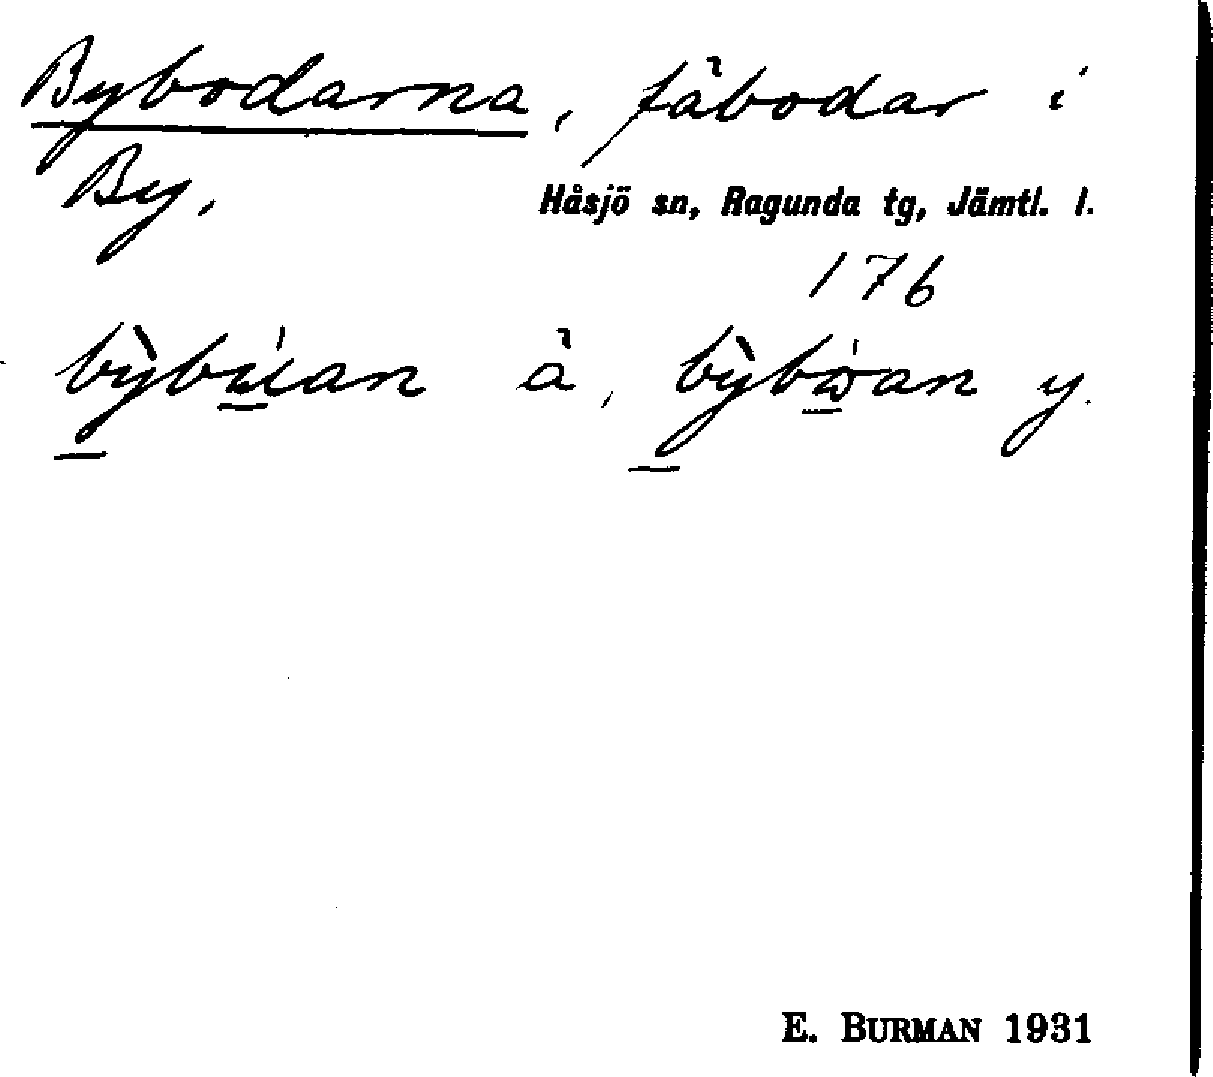 Bybodarna, fäbodar i
By,
Håsjö sn, Ragunda tg, Jämtl. l.
176
E. BURMAN 1931